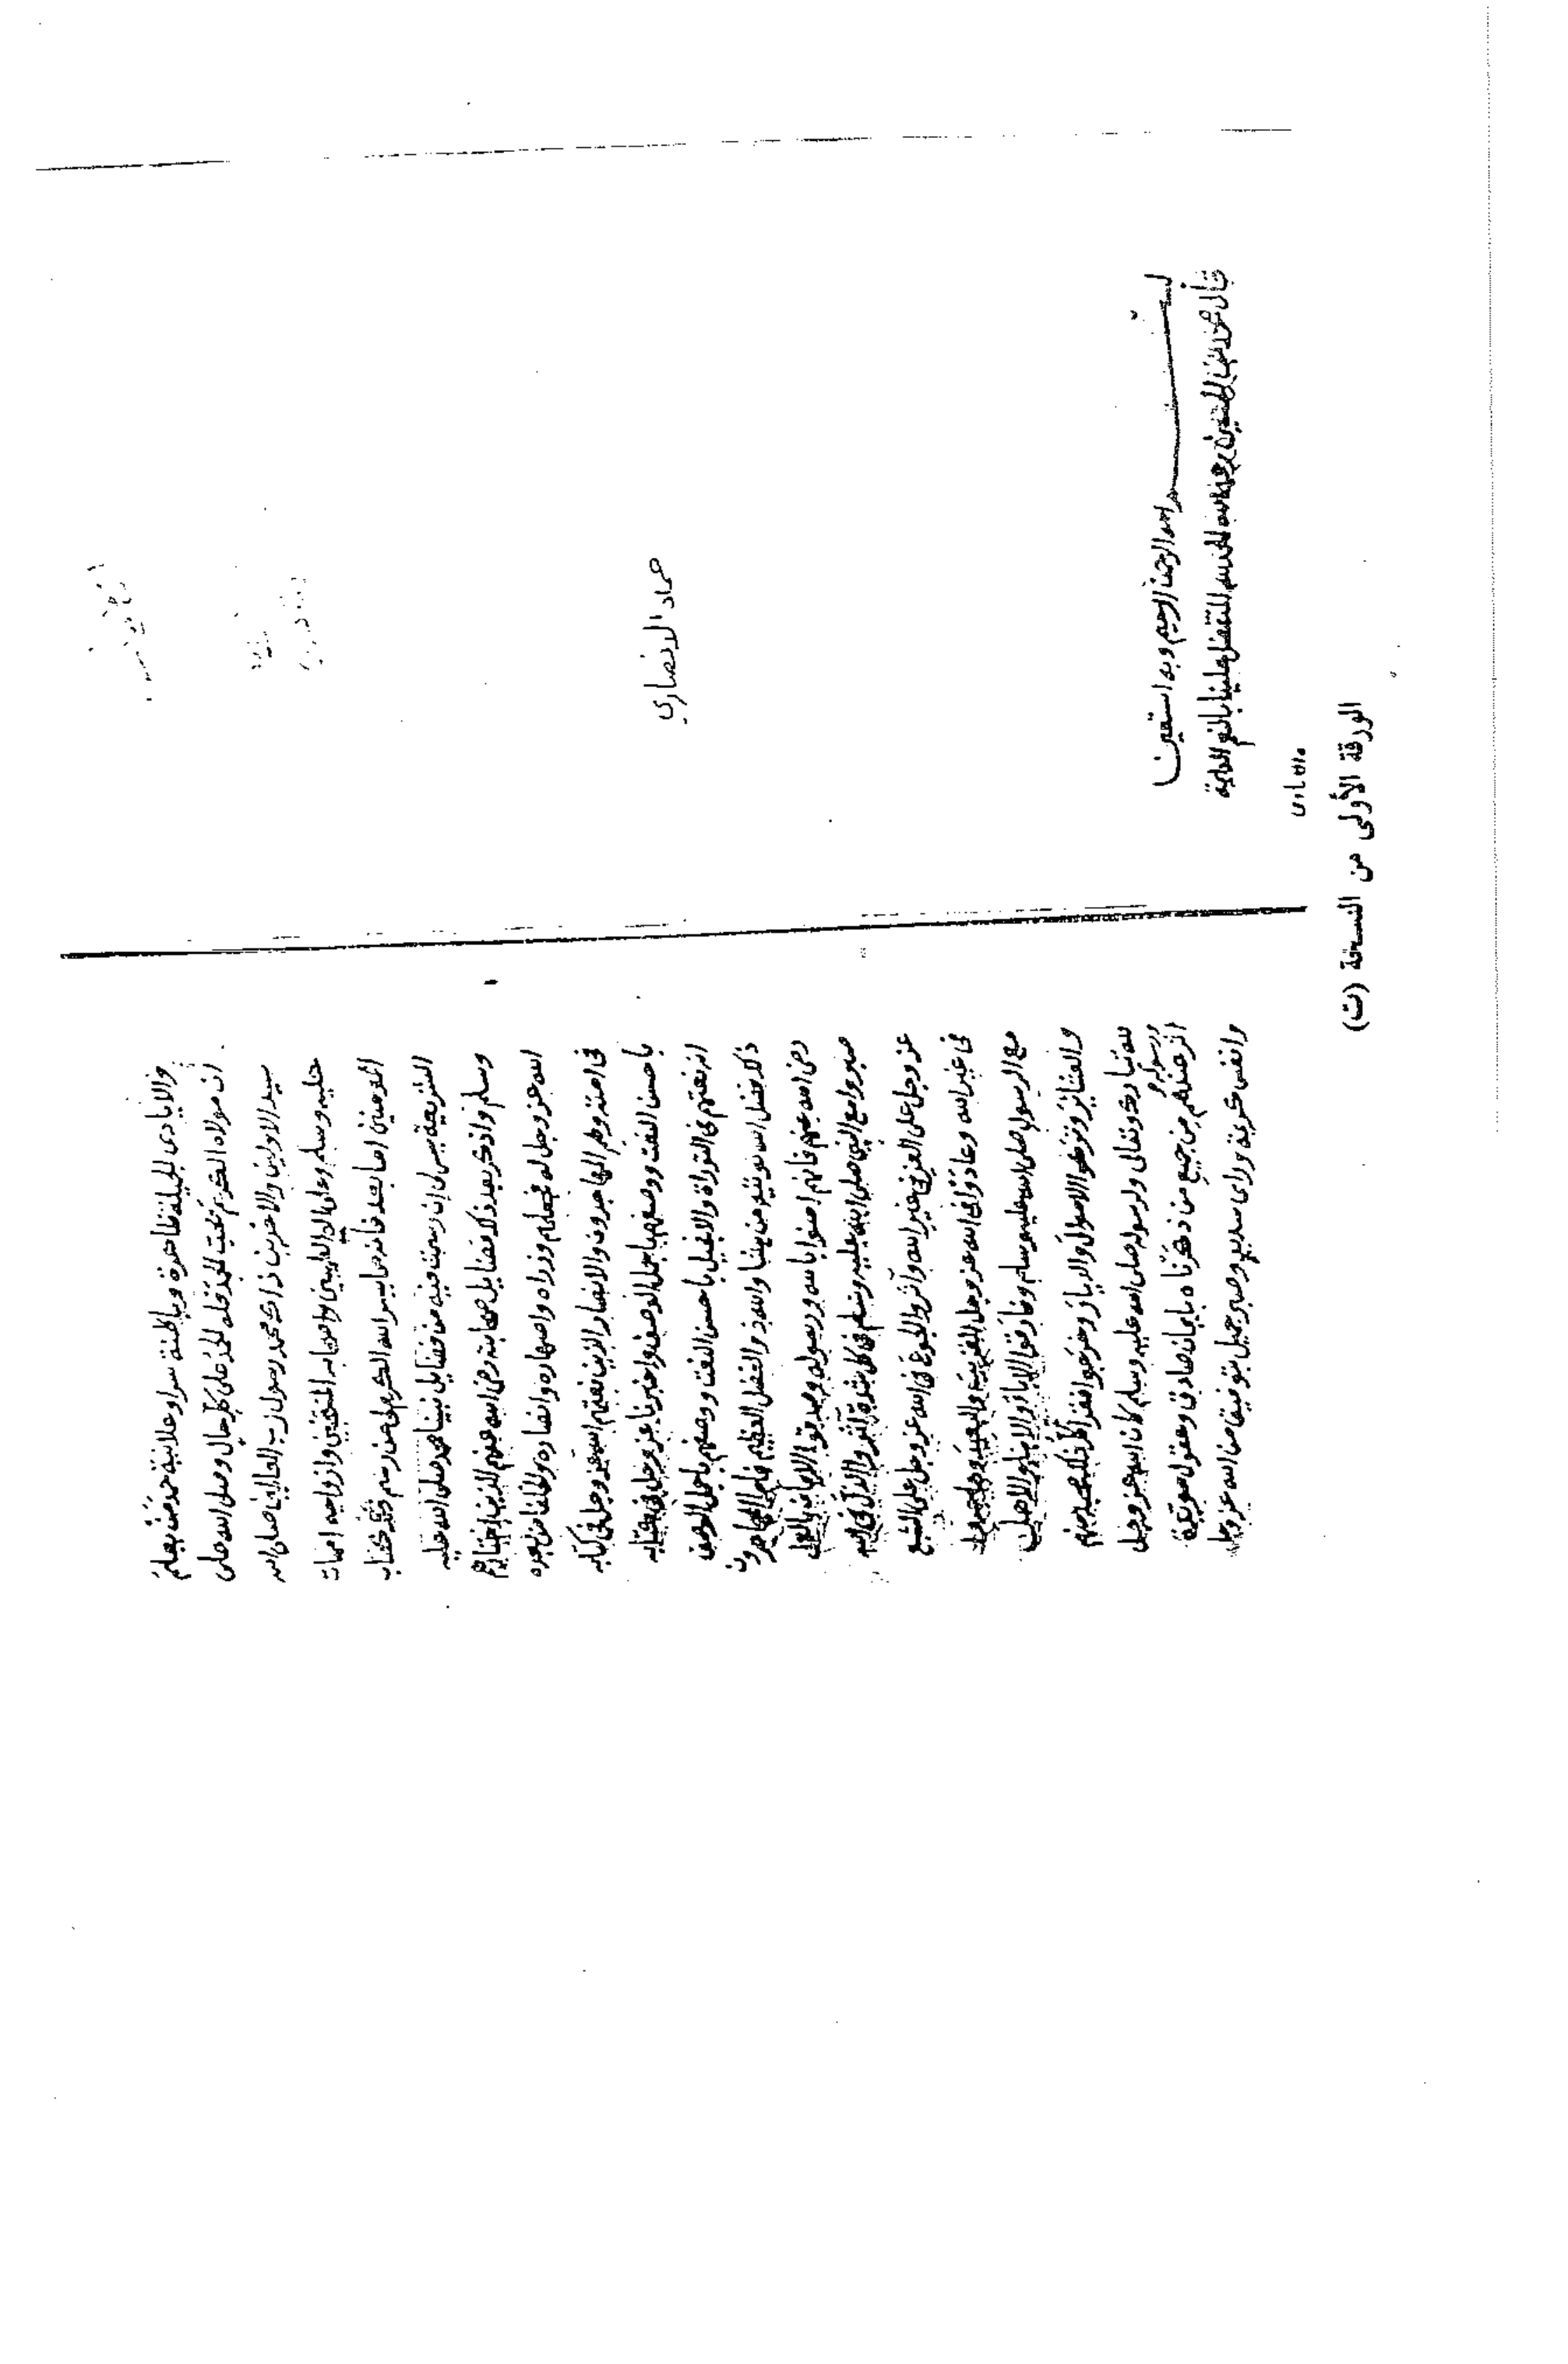 حماد الانصاري
بسم الله الرحمن الرحيم وبه استعين
قال محمد بن الحسين رحمه الله الحمد لله المتفضل علينا بالنعم الدايمة
والايادى
والايادى الجميلة ظاهرة وباطنة سرا وعلانية حمد من يعلم
ان مولاه الكريم يحب الحمد فله الحمد على كل حال وصلى الله على
سيد الاولين والاخرين ذاك محمد رسول رب العالمين صلى الله
عليه وسلم وعلى اله الطيبين واصحابه المنتخبين وازواجه امهات
المومنين اما بعد فانه مما يسر الله الكريم لى من رسم كتاب
الشريعة يسر لى ان رسمت فيه من فضايل نبينا محمد صلى الله عليه
وسلم واذكر بعد ذلك فضايل صحابته رضى الله عنهم الذين اختارهم
الله عز وجل له فجعلهم وزراه واصهاره وانصاره والخلفا من بعده
فى امته وهم المهاجرون والانصار الذين نعتهم الله عز وجل فى كتابه
باحسن النعت ووصفهم باجمل الوصف واخبرنا عز وجل فى كتابه
انه نعتهم فى التوراة والانجيل باحسن النعت ووصفهم باجمل الوصف
ذلك فضل الله يوتيه من يشا والله ذو الفضل العظيم فاما المهاجرون
رضى الله عنهم فانهم امنوا بالله ورسوله وصدقوا الايمان بالعمل
صبروا مع النبى صلى الله عليه وسلم فى كل شدة آثروا الذل فى الله
عز وجل على العز فى غير الله وآثروا الجوع فى الله عز وجل على الشبع
فى غير الله وعادوا فى الله عز وجل القريب والبعيد وهاجروا
مع الرسول صلى الله عليه وسلم وفارقوا الابا والابنا والاهل
والعشاير وتركوا الاموال والديار وخرجوا فقرا كل ذلك محبة منهم
لله تبارك وتعالى ولرسوله صلى الله عليه وسلم كان الله عز وجل
ورسوله آثر عندهم من جميع من ذكرناه بايمان صادق وعقول مويدة
وانفس كريمة وراى سديد وصبر جميل بتوفيق من الله عز وجل
الورقة الأولى من النسخة (ت)